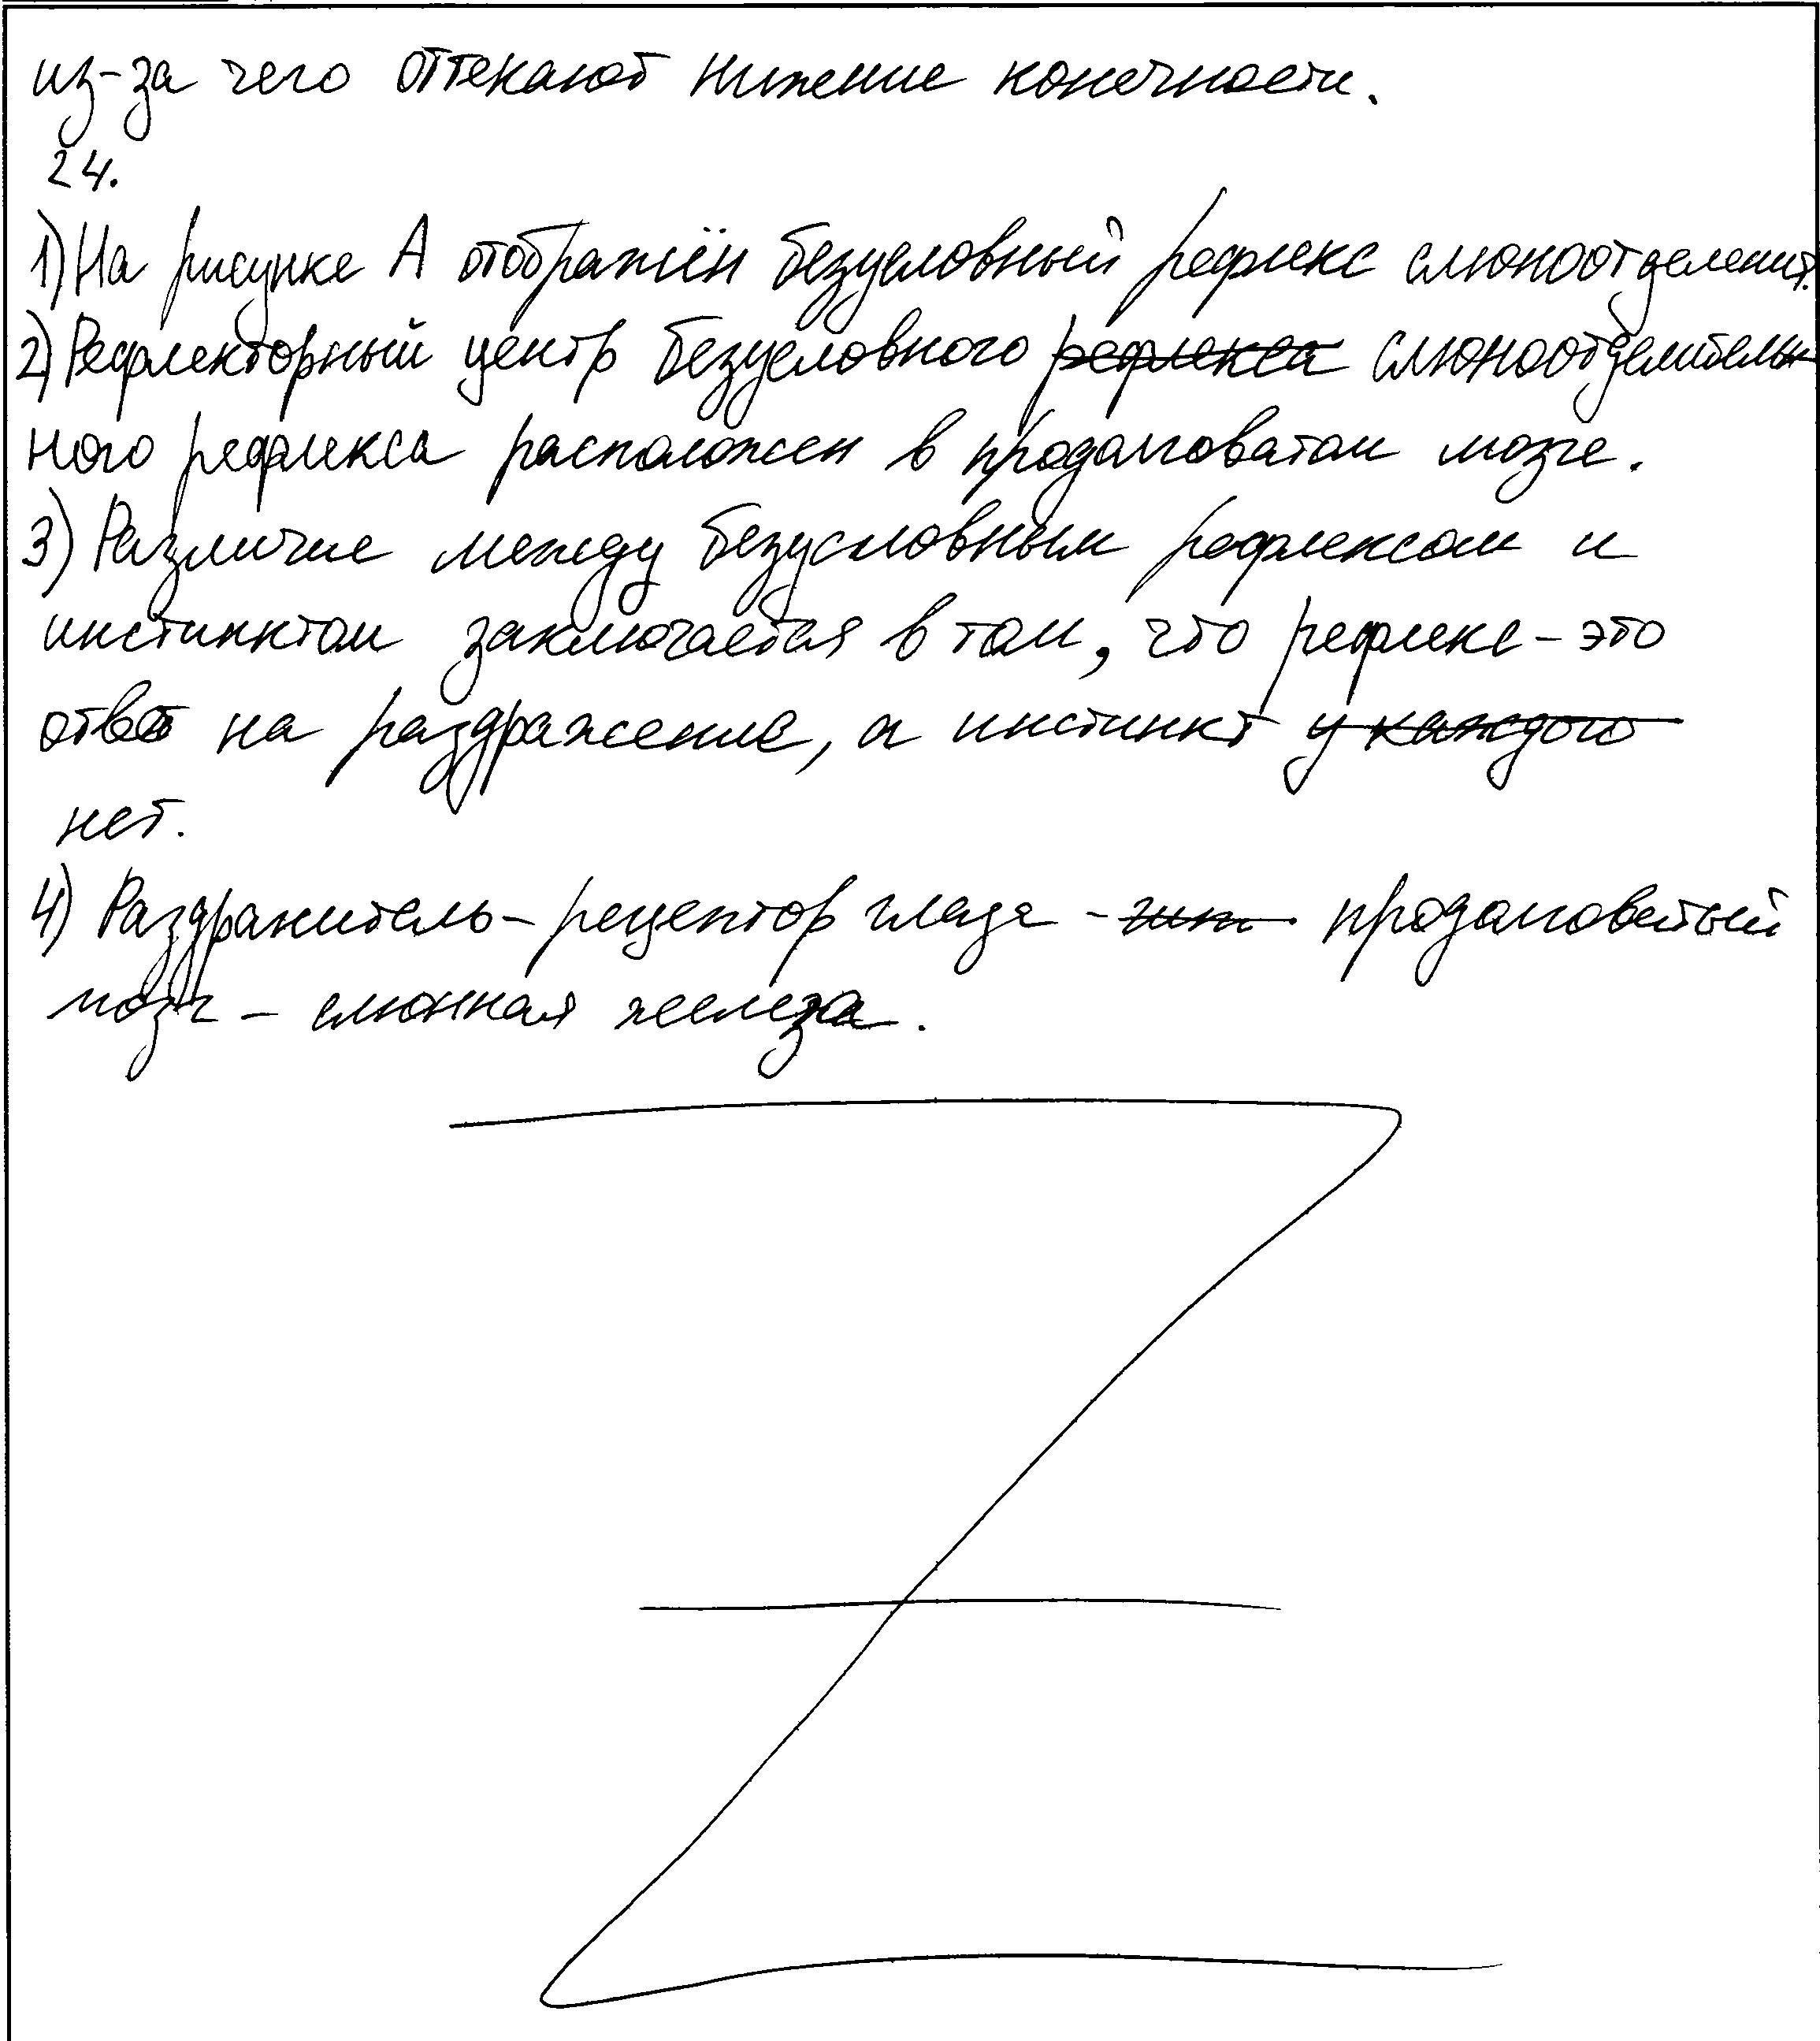 из-за чего оттекают нижние конечности.
24.
1) На рисунке А отображён безусловный рефлекс слюноотделения.
2) Рефлекторный центр безусловного рефлекса слюноотделитель
ного рефлекса расположен в продолговатом мозге.
3) Различие между безусловным рефлексом и
инстинктом заключается в том, что рефлекс - это
ответ на раздражение, а инстинкт у каждого
нет.
4) Раздражитель - рецептор глаза - продолговатый
мозг - слюнная железа.